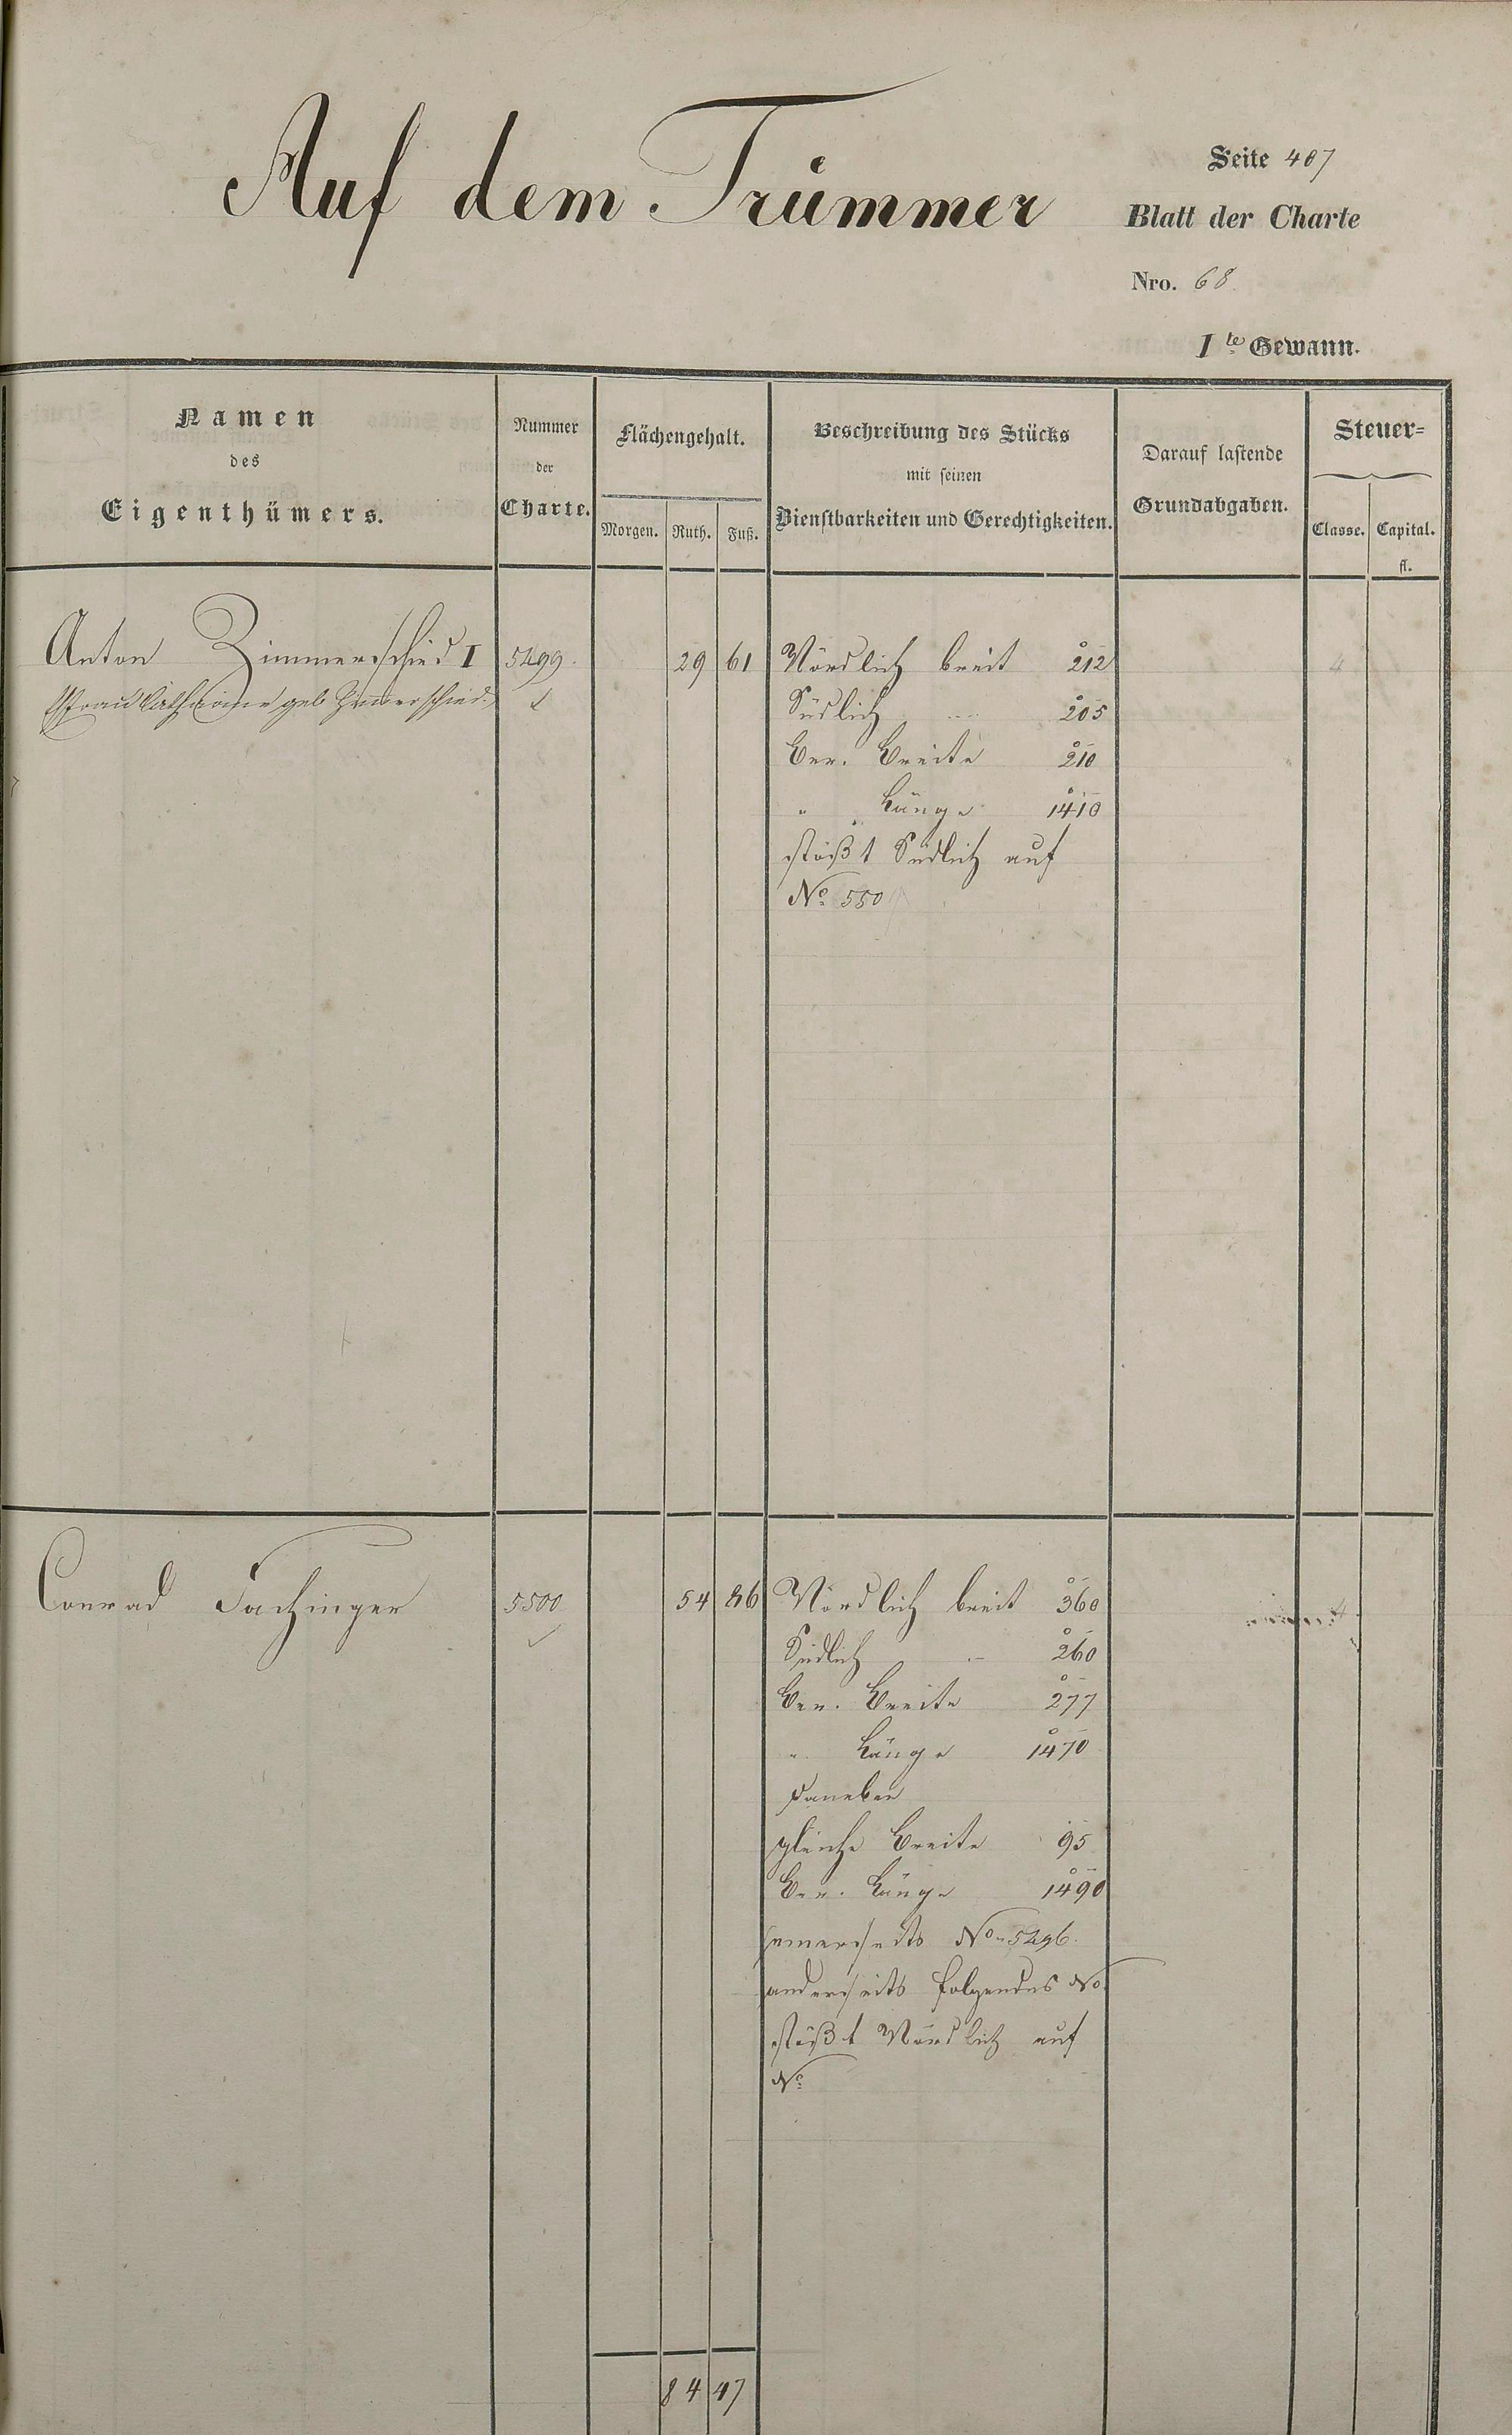 Auf dem Trümmer
Seite 407
Blatt der Charte
Nro. 68.
I te Gewann.
Namen
des
Eigenthümers.
Nummer
der
Charte.
Flächengehalt.
Morgen. Ruth. Fuß.
Beschreibung des Stücks
mit seinen
Dienstbarkeiten und Gerechtigkeiten.
Darauf lastende
Grundabgaben.
Steuer-
Classe. Capital.
fl.
Anton Zimmerschied I 5499. 29 61 Nördlich breit 212 4
(Frau Catharine geb Zimerschied.)
Südlich 205
Ber. Breite 210
" Länge 1410
stößt Südlich auf
No 550
Conrad Fachinger 5500 54 86 Nördlich breit 360 4
Südlich - 260
Ber. Breite 277
" Länge 1470
Daneben
gleiche Breite 95
Ber. Länge 1490
einerseits No 5496.
anderseits folgendes No.
stößt Nördlich auf
No
84 47